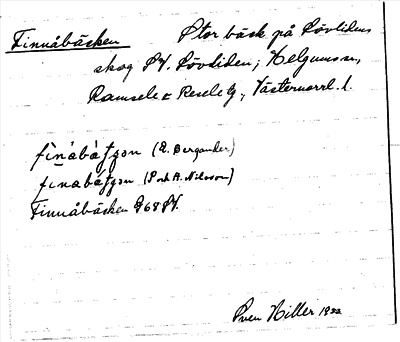 Finnåbäcken Stor bäck på Lövlidens
skog SV. Lövliden, Helgumssn,
Ramsele & Resele tg., Västernorrl. l.
finåbáƭʒən (E. Bergander)
finabáƭʒən (P. och A. Nilsson)
Finnåbäcken G 68 SV.
Sven Hiller 1932